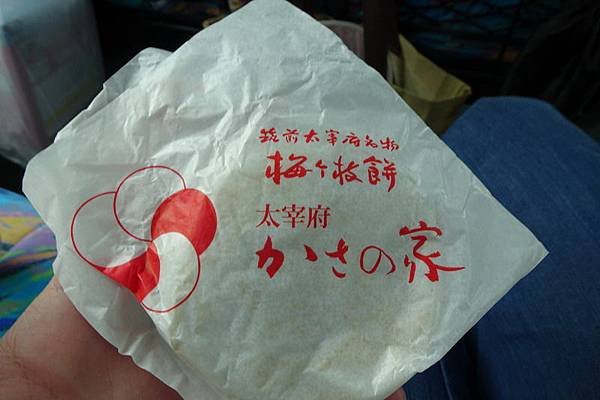 筑前太宰府名物
梅ヶ枝餅
太宰府
かさの家